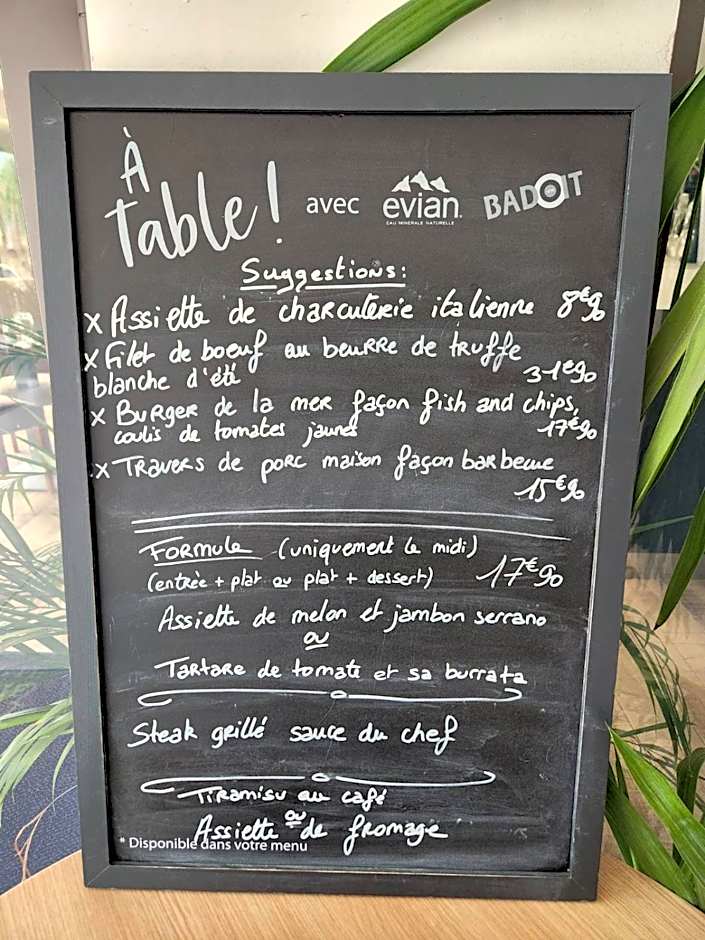 À
Table! avec evian. BADOIT
EAU MINERALE NATURELLE
Suggestions:
x Assiette de charcuterie italienne 8€90
x Filet de boeuf au beurre de truffe
blanche d'été 31€90
x Burger de la mer façon fish and chips,
coulis de tomates jaunes 17€90
x Travers de porc maison façon barbecue
15€90
Formule (uniquement le midi)
(entrée + plat ou plat + dessert) 17€90
Assiette de melon et jambon serrano
ou
Tartare de tomate et sa burrata
Steak grillé sauce du chef
Tiramisu au café
ou
Assiette de fromage
* Disponible dans votre menu